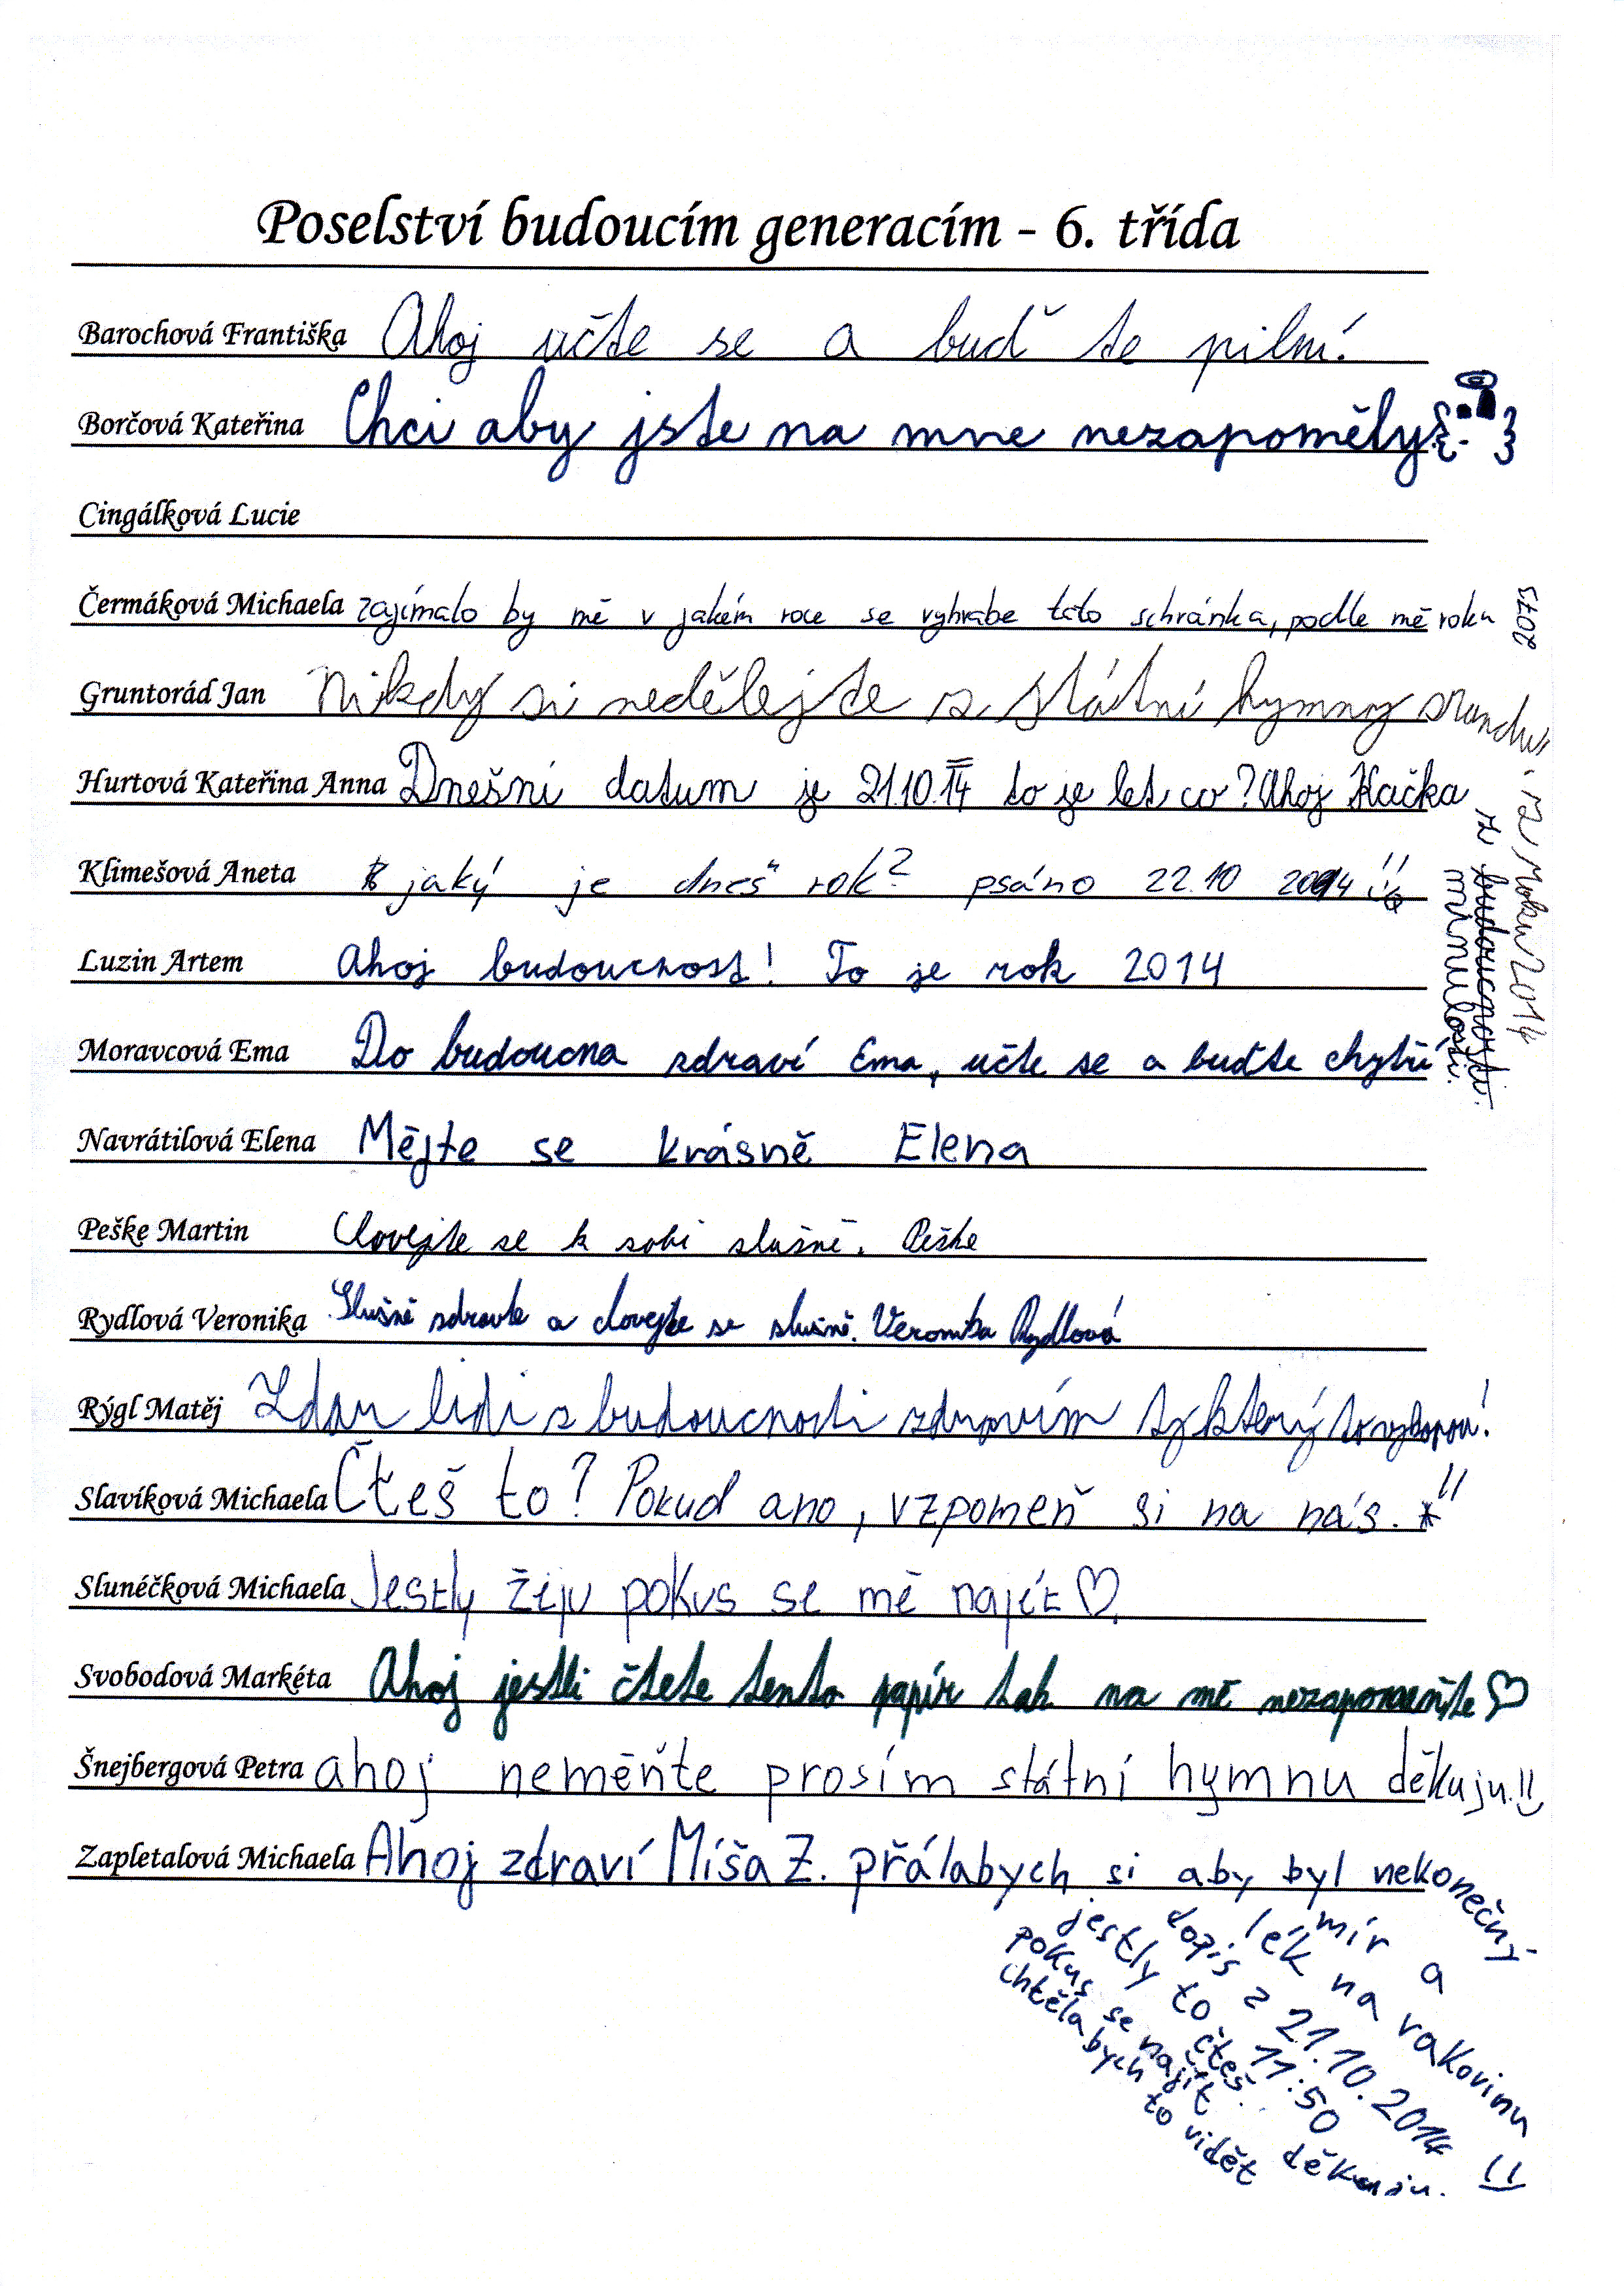 Poselství budoucím generacím - 6. třída
Barochová Františka Ahoj učte se a buď te pilní.
Borčová Kateřina Chci aby jste na mne nezapoměly
Cingálková Lucie
Čermáková Michaela zajímalo by mě v jakém roce se vyhrabe tato schránka, podle mě roku 2075
Gruntorád Jan Nikdy si nedělejte z státní hymny srandu.
Hurtová Kateřina Anna Dnešní datum je 21.10.14 to je let co? Ahoj Kačka
z roku 2014
z budoucnosti.
minulosti.
Klimešová Aneta jaký je dneš rok? psáno 22.10 2014 !!
Luzin Artem Ahoj budoucnost! To je rok 2014
Moravcová Ema Do budoucna zdraví Ema, učte se a buďte chytří
Navrátilová Elena Mějte se krásně Elena
Peške Martin Chovejte se k sobě slušně. Peške
Rydlová Veronika Slušně zdravte a chovejte se slušně. Veronika Rydlová
Rýgl Matěj Zdar lidi z budoucnosti zdravím ty který to vykopou!
Slavíková Michaela Čteš to? Pokud ano, vzpomeň si na nás.
Slunéčková Michaela Jestly žiju pokus se mě najít ♡.
Svobodová Markéta Ahoj jestli čtete tento papír tak na mě nezapomeňte ♡
Šnejbergová Petra ahoj neměňte prosím státní hymnu děkuju.!!
Zapletalová Michaela Ahoj zdraví Míša Z. přálabych si aby byl nekonečný
mír a
lék na rakovinu !!
dopis z 21.10.2014
11:50
jestly to čteš..
pokus se najít děkuju.
chtěla bych to vidět